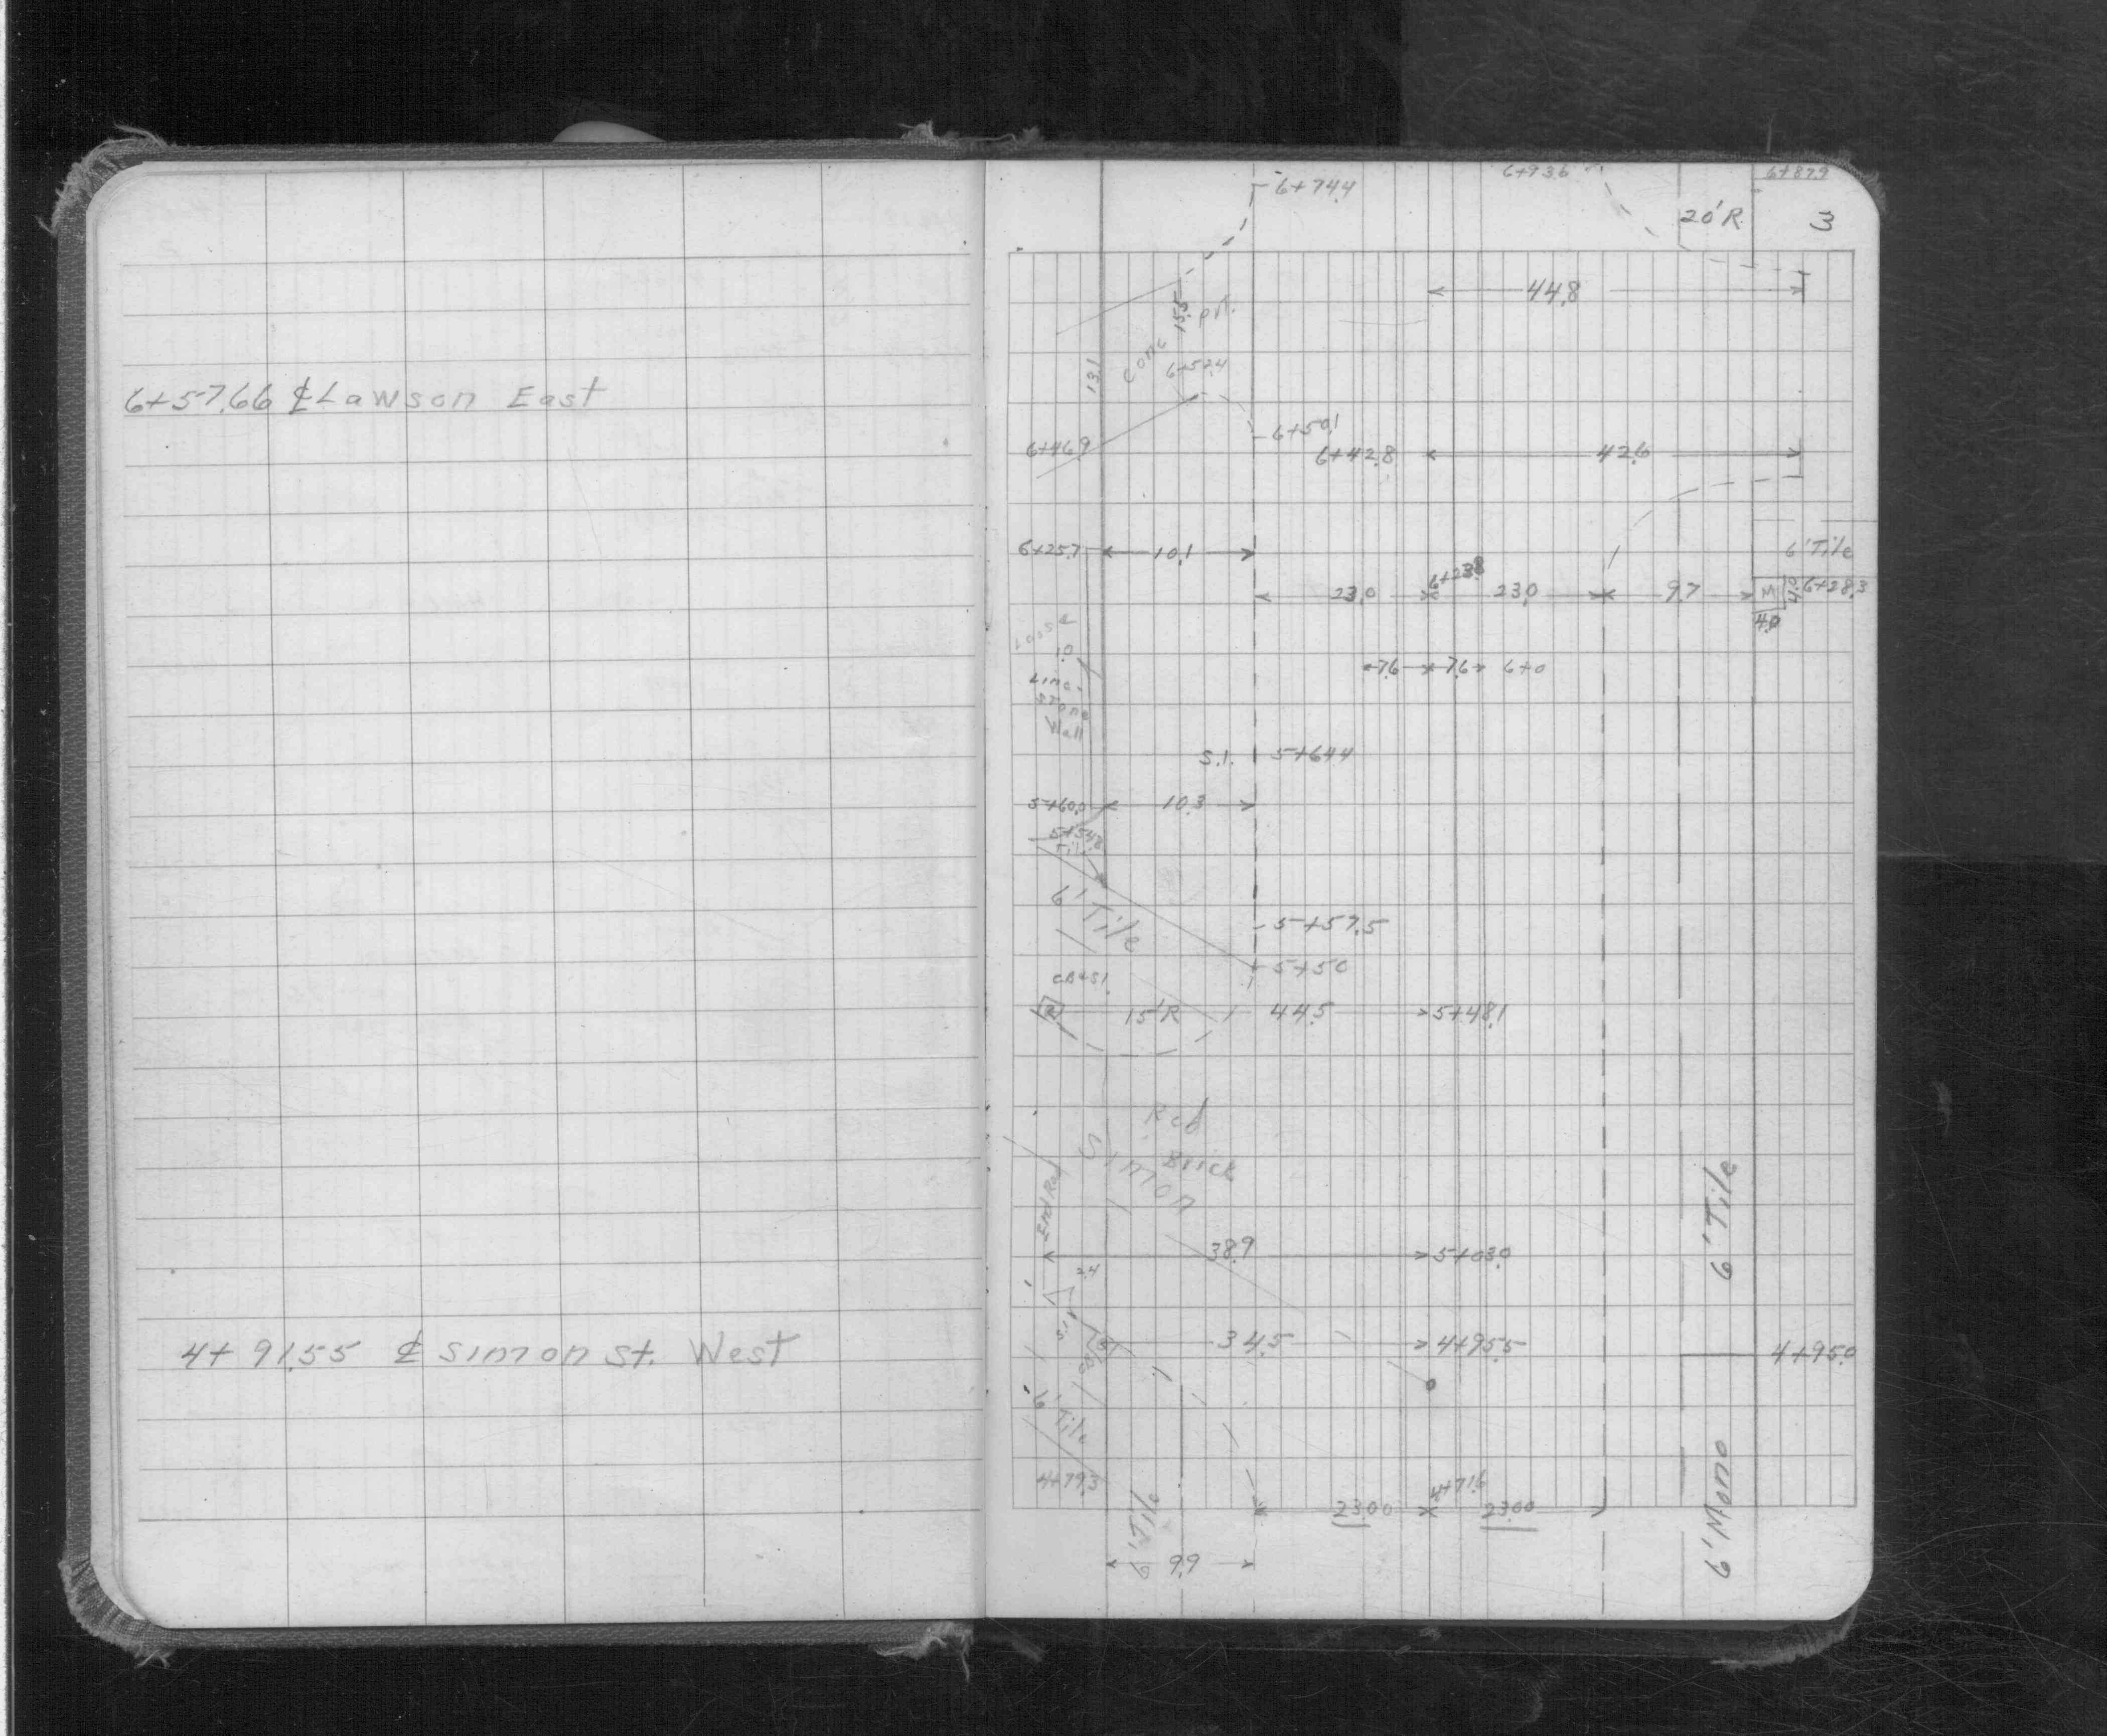 6+57.66 ℄ Lawson East
4+91.55 ℄ Simon St. West
6+74.4
6+73.6
6+87.9
20'R
3
44.8
15.5
Conc. pvt.
13.1
6+52.4
6+50.1
6+46.9
6+42.8
42.6
6+25.7
10.1
6'Tile
6+23.8
23.0
23.0
9.7
M
4.0
6+28.3
4.0
7.6
7.6
6+0
1.0
Stone
Wall
S.I.
5+64.4
5+60.0
10.3
5+54.8
Tile
6' Tile
5+57.5
5+50
CB&SI.
15'R
44.5
5+48.1
Red
Brick
Simon
End Rad
38.9
5+03.0
2.4
S.I.
34.5
4+95.5
4+95.0
6' Tile
6' Tile
4+79.3
6' Tile
4+71.6
23.00
23.00
6' Mono
9.9